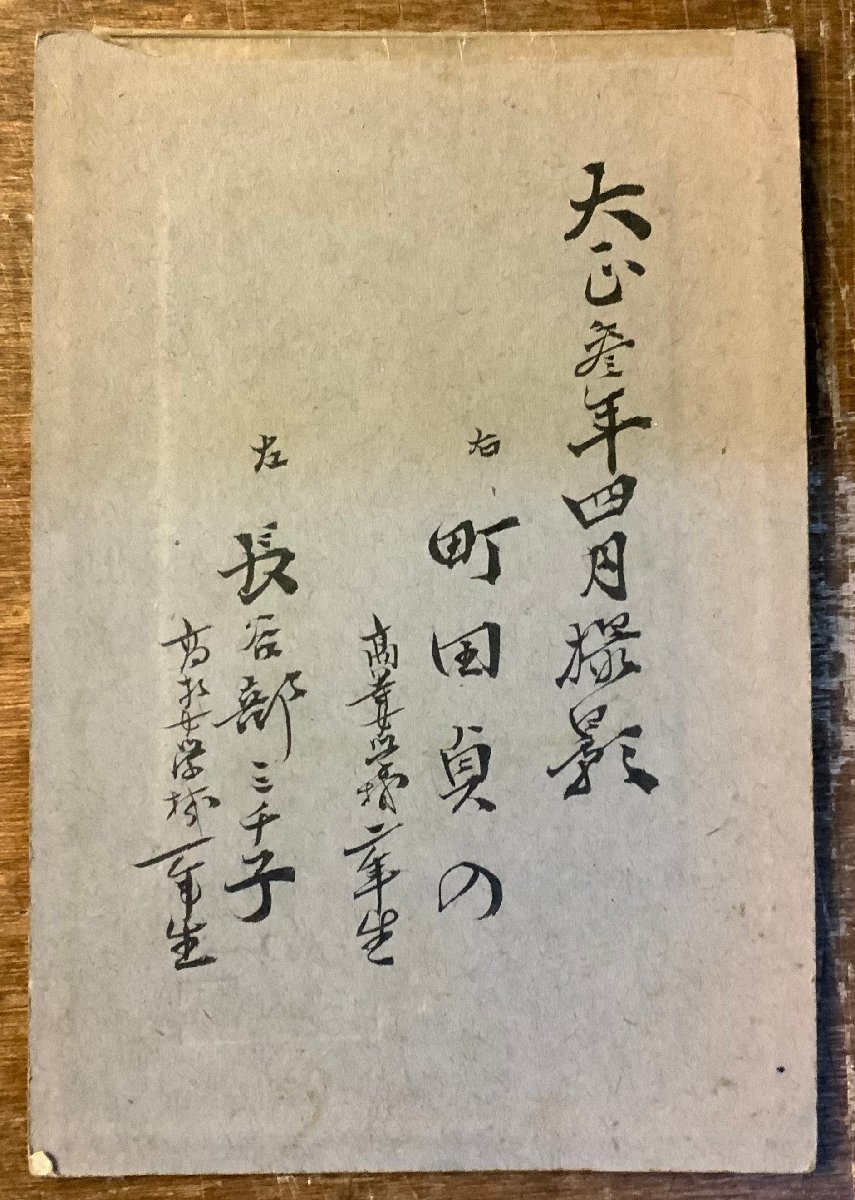 大正参年四月撮影
右 町田貞の
高等女学校二年生
左 長谷部三千子
高等女学校一年生